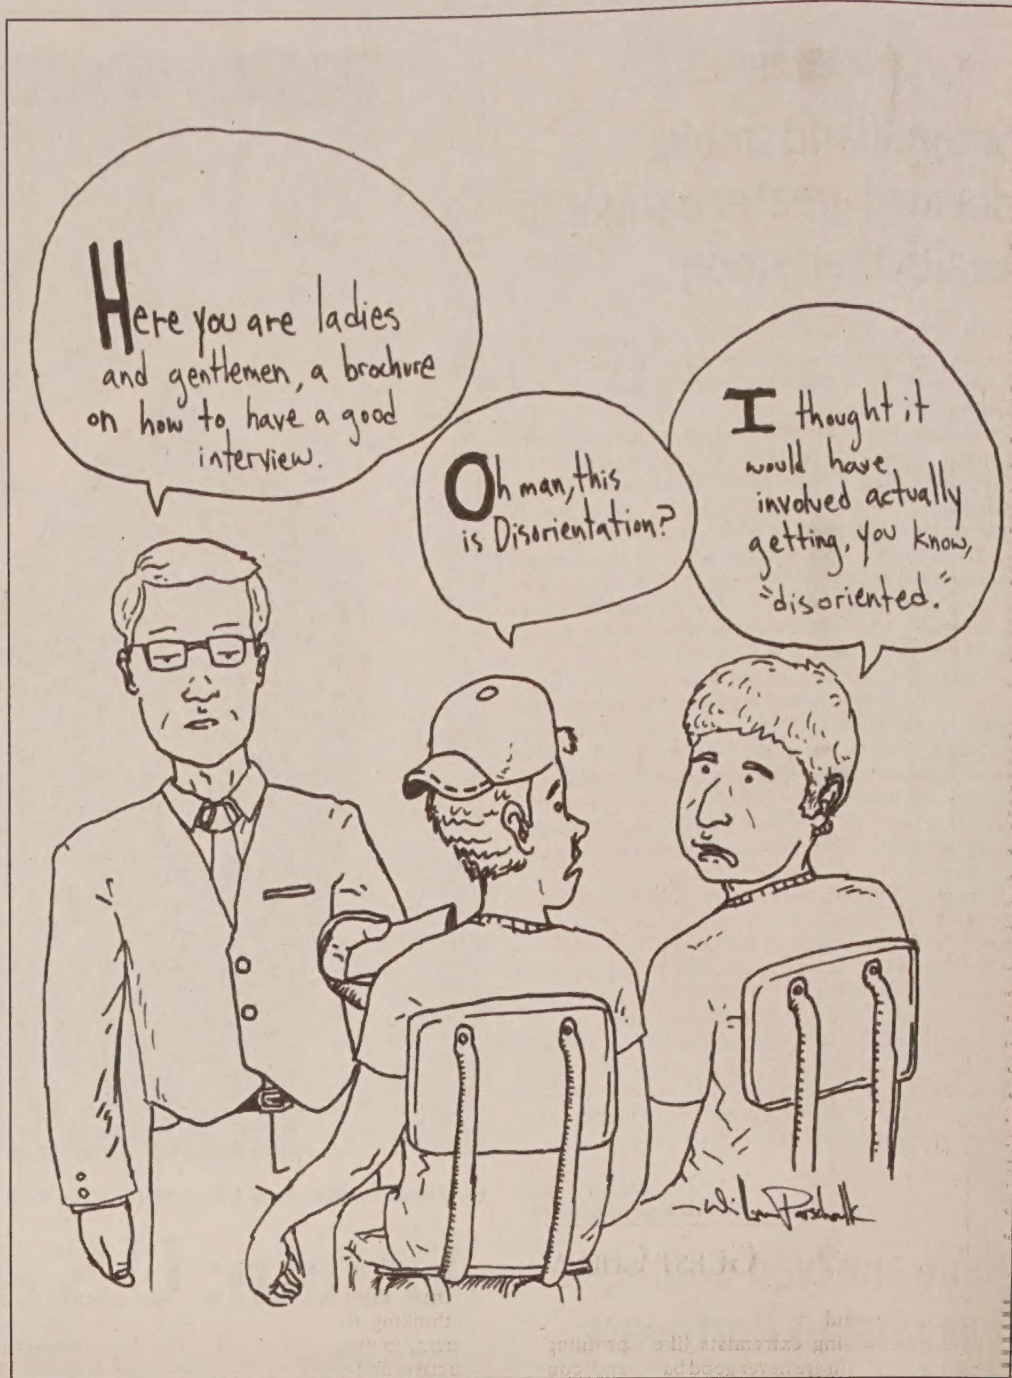 Here you are ladies
and gentlemen, a brochure
on how to have a good
interview.
Oh man, this
is Disorientation?
I thought it
would have
involved actually
getting, you know,
"disoriented."